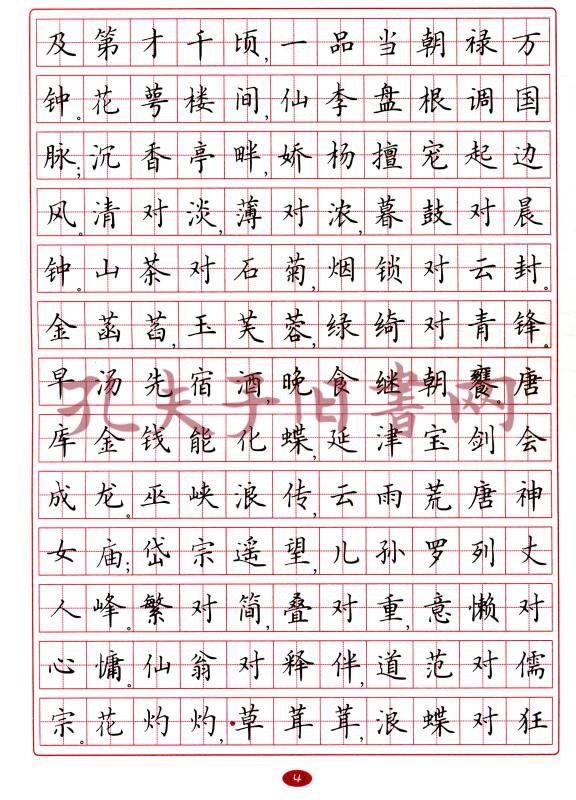 及第才千顷,一品当朝禄万
钟。花萼楼间,仙李盘根调国
脉;沉香亭畔,娇杨擅宠起边
风。清对淡,薄对浓,暮鼓对晨
钟。山茶对石菊,烟锁对云封。
金菡萏,玉芙蓉,绿绮对青锋。
早汤先宿酒,晚食继朝饔。唐
库金钱能化蝶,延津宝剑会
成龙。巫峡浪传,云雨荒唐神
女庙;岱宗遥望,儿孙罗列丈
人峰。繁对简,叠对重,意懒对
心慵。仙翁对释伴,道范对儒
宗。花灼灼,草茸茸,浪蝶对狂
孔夫子旧书网
4